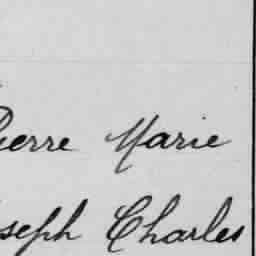 Pierre Marie
Joseph Charles